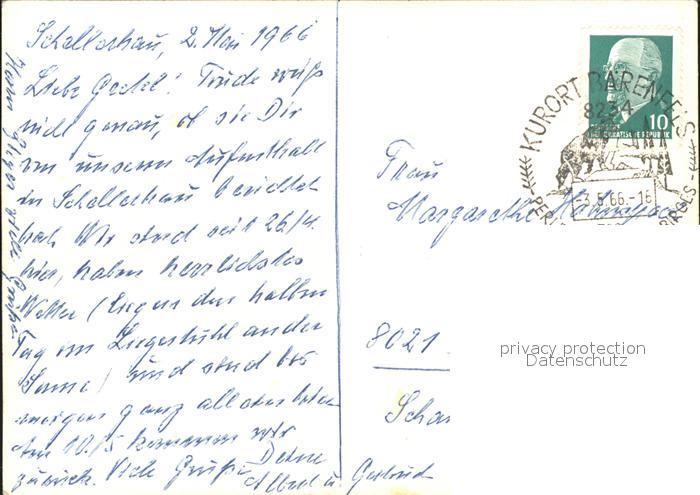 Schellerhau, 2. Mai 1966
Liebe Gretel! Trude weiß
nicht genau, ob sie Dir
von unserem Aufenthalt
in Schellerhau berichtet
hat. Wir sind seit 26/4.
hier, haben herrlichstes
Wetter (liegen den halben
Tag im Liegestuhl an der
Sonne) und sind bis
morgen ganz allein
Am 10./5 kommen wir
zurück. Viele Grüße Deine
Albert u. Gertrud
viele Grüße
Frau
Margarethe
8021
KURORT BÄRENFELS
8234
-3.5.66.-16
PERLE
10
DEUTSCHE
DEMOKRATISCHE REPUBLIK
privacy protection
Datenschutz